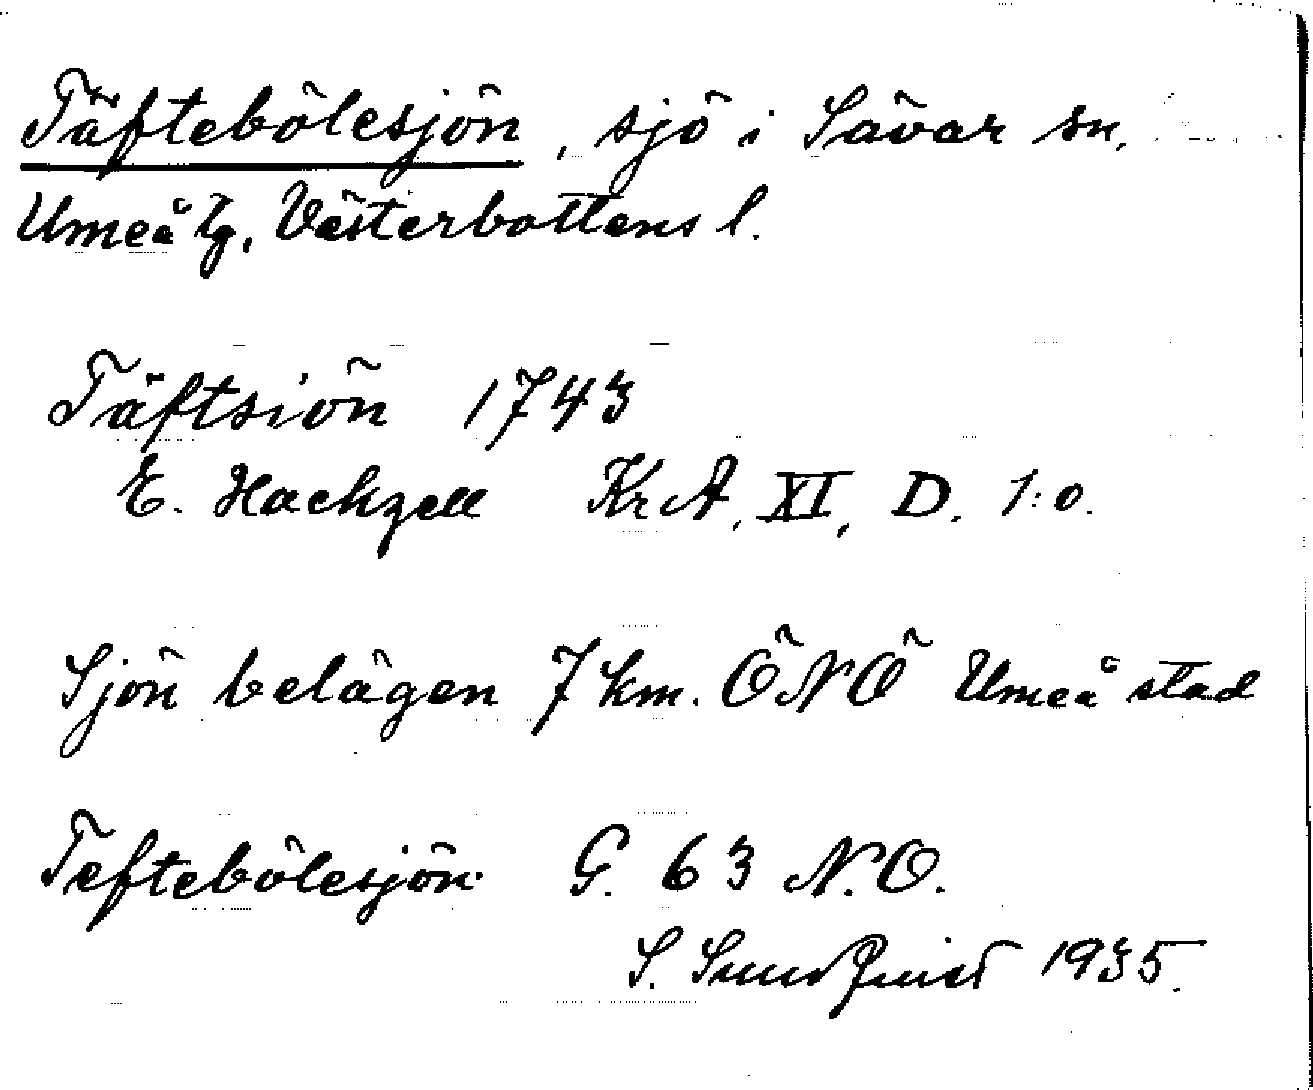 Täftebölesjön, sjö i Sävar sn,
Umeå tg, Västerbottens l.
Täftsiön 1743
E. Hackzell KrA, XI, D. 1:o.
Sjön belägen 7 km. ÖNÖ Umeå stad
Teftebölesjön G. 63 N.O.
S. Sundquist 1935.